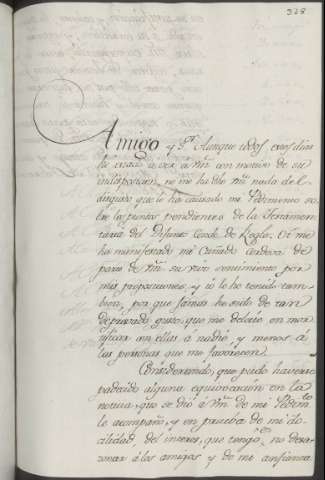 328
Amigo y S.r Aunque todos estos dias
he estado a ver a Vm. con motivo de su
indisposicion, no me ha dho Vm. nada del
disgusto que le ha causado mi Pedimento so-
bre los puntos pendientes de la Testamen-
taria del Difunto Conde de Regla. Oi me
ha manifestado mi Cuñado Cordova de
parte de Vm. su vivo sentimiento por
mis proposiciones, y io le he tenido tam-
bien, por que jamas he sido de tan
depravado gusto, que me deleite en mor-
tificar con ellas á nadie, y menos á
las personas que me favorecen.
Considerando, que pudo haverse
padecido alguna equivocacion en la
noticia, que se dió á Vm. de mi Pedim.to
le acompaño, y en prueba de mi do-
cilidad, del interes, que tengo en no desa-
zonar á los amigos y de mi confianza